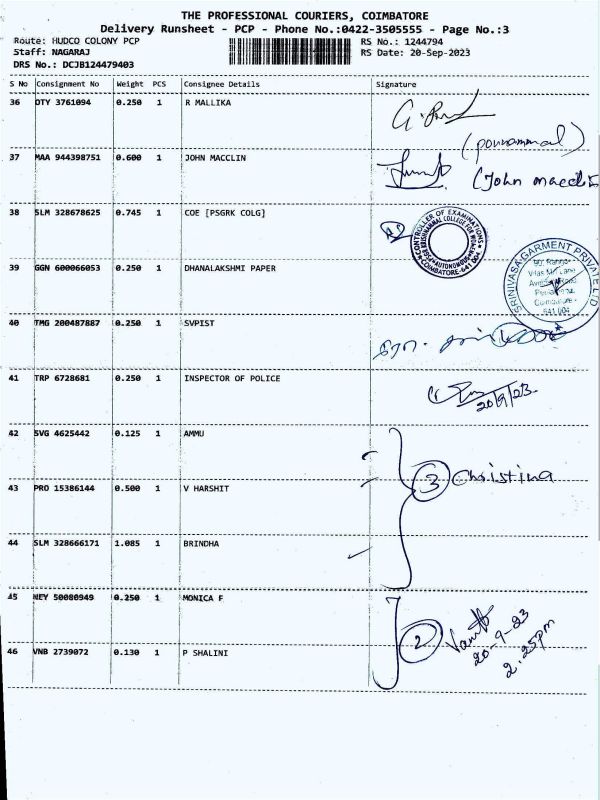 THE PROFESSIONAL COURIERS, COIMBATORE
Delivery Runsheet - PCP - Phone No.:0422-3505555 - Page No.:3
Route: HUDCO COLONY PCP RS No.: 1244794
Staff: NAGARAJ RS Date: 20-Sep-2023
DRS No.: DCJB124479403
S No Consignment No Weight PCS Consignee Details Signature
36 OTY 3761094 0.250 1 R MALLIKA
(ponnammal)
37 MAA 944398751 0.600 1 JOHN MACCLIN
(John macclin
38 SLM 328678625 0.745 1 COE [PSGRK COLG]
CONTROLLER OF EXAMINATIONS
COIMBATORE-641 004
39 GGN 600066053 0.250 1 DHANALAKSHMI PAPER
SRINIVASA GARMENT PRIVATE LTD
40 TMG 200487887 0.250 1 SVPIST
41 TRP 6728681 0.250 1 INSPECTOR OF POLICE
20/9/23.
42 SVG 4625442 0.125 1 AMMU
3 Christina
43 PRO 15386144 0.500 1 V HARSHIT
44 SLM 328666171 1.085 1 BRINDHA
45 NEY 50080949 0.250 1 MONICA F
2
20-9-23
2.25pm
46 VNB 2739072 0.130 1 P SHALINI